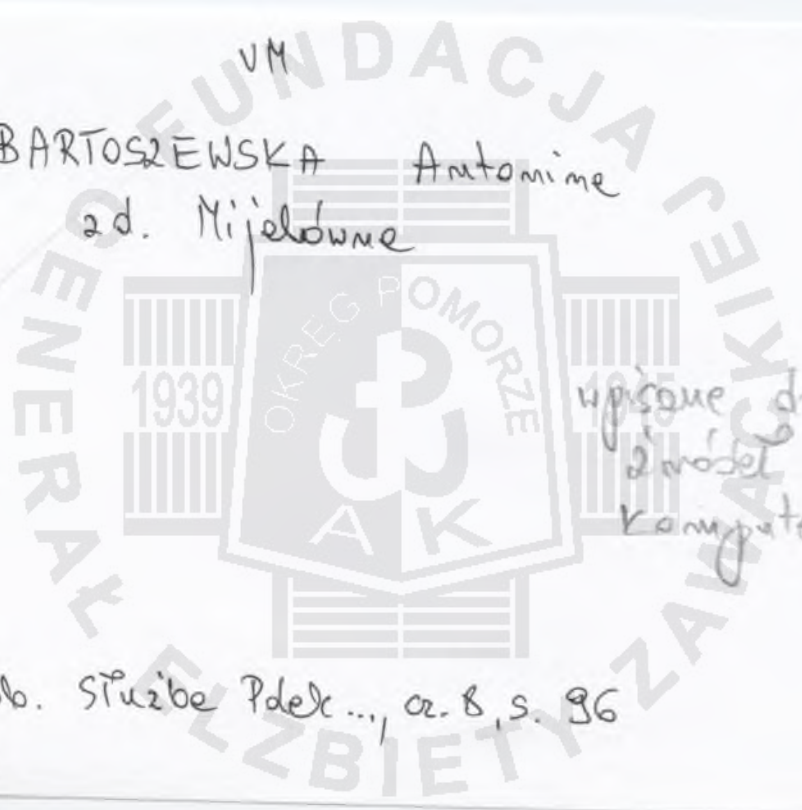 VM
BARTOSZEWSKA Antonina
zd. Mijelówna
wpisane d
źródeł
komput
b. Służba Polek..., cz. B, s. 96
FUNDACJA
GENERAŁ ELŻBIETY ZAWACKIEJ
OKRĘG POMORZE
1939
1945
AK